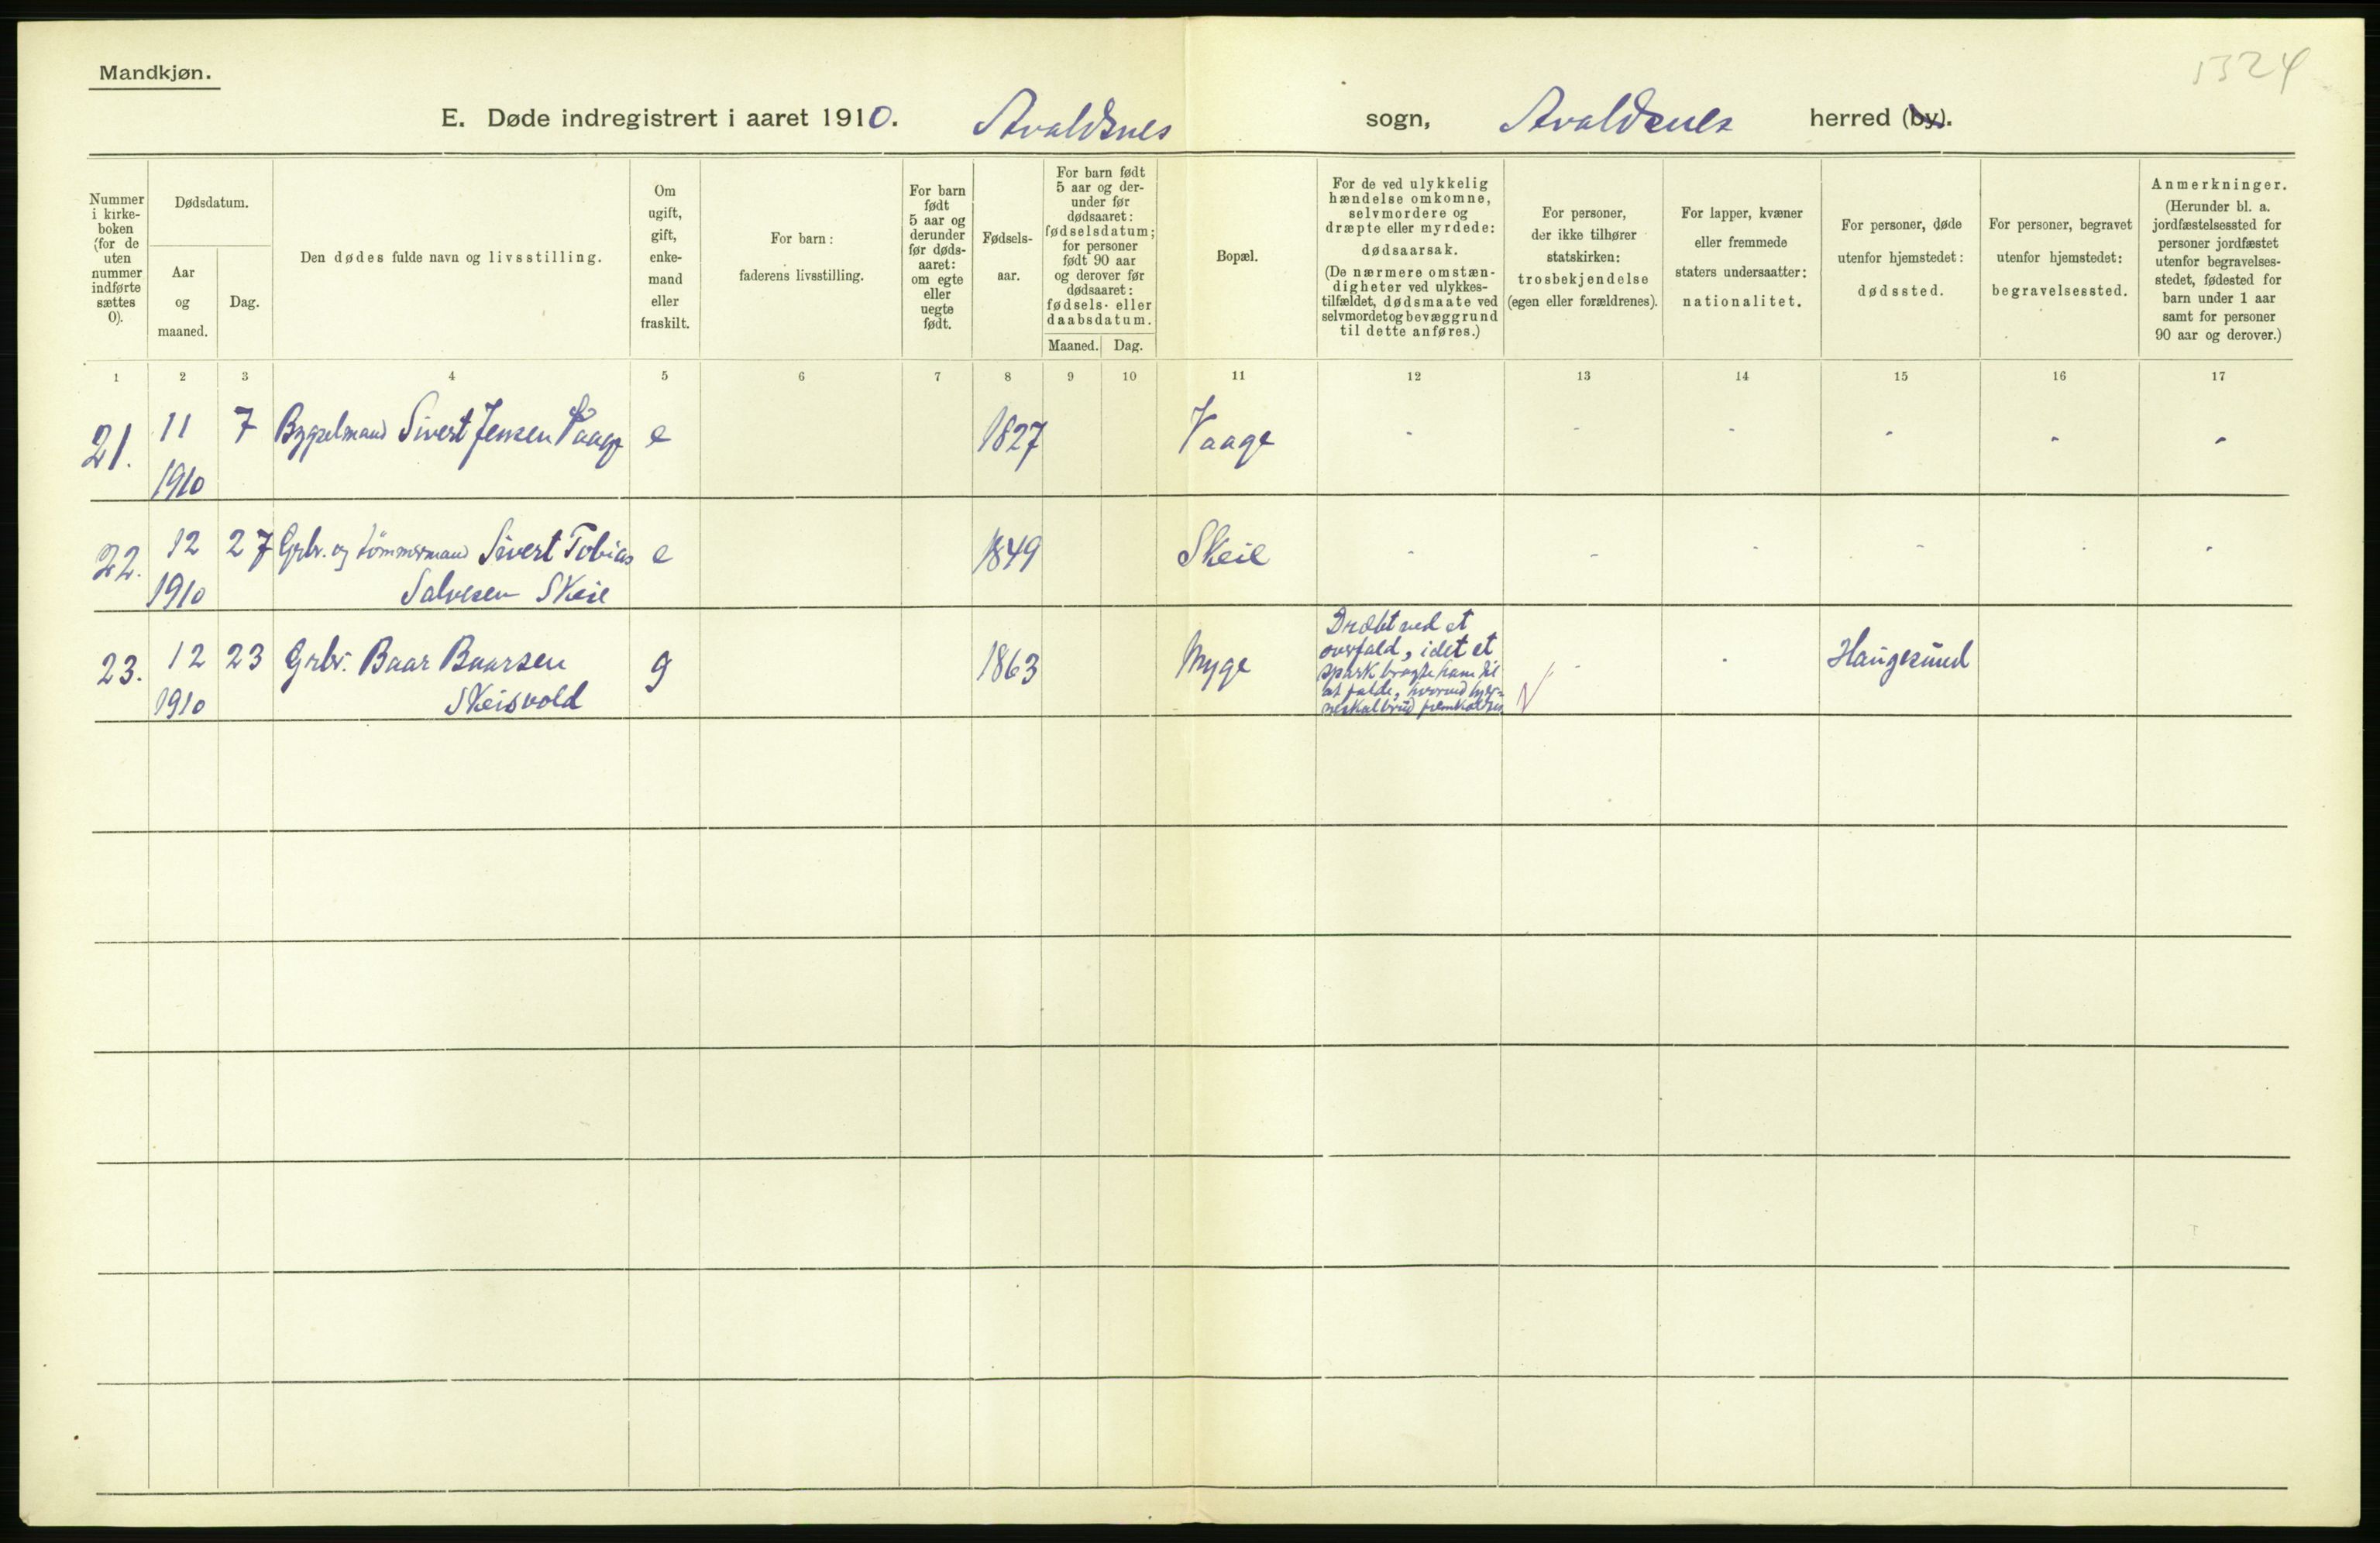 Mandkjøn.
5324
E. Døde indregistrert i aaret 1910. Avaldsnes sogn, Avaldsnes herred (by).
Nummer i kirke-boken (for de uten nummer indførte sættes 0).
Dødsdatum.
Aar og maaned.
Dag.
Den dødes fulde navn og livsstilling.
Om ugift, gift, enke-mand eller fraskilt.
For barn: faderens livsstilling.
For barn født 5 aar og derunder før døds-aaret: om egte eller uegte født.
Fødsels-aar.
For barn født 5 aar og der-under før dødsaaret: fødselsdatum; for personer født 90 aar og derover før dødsaaret: fødsels- eller daabsdatum.
Maaned.
Dag.
Bopæl.
For de ved ulykkelig hændelse omkomne, selvmordere og dræpte eller myrdede: dødsaarsak. (De nærmere omstæn-digheter ved ulykkes-tilfældet, dødsmaate ved selvmordet og bevæggrund til dette anføres.)
For personer, der ikke tilhører statskirken: trosbekjendelse (egen eller forældrenes).
For lapper, kvæner eller fremmede staters undersaatter: nationalitet.
For personer, døde utenfor hjemstedet: dødssted.
For personer, begravet utenfor hjemstedet: begravelsessted.
Anmerkninger. (Herunder bl. a. jordfæstelsessted for personer jordfæstet utenfor begravelses-stedet, fødested for barn under 1 aar samt for personer 90 aar og derover.)
1 2 3 4 5 6 7 8 9 10 11 12 13 14 15 16 17
21. 11 7 Bygselmand Sivert Jensen Vaage e 1827 Vaage - - - - - -
1910
22. 12 27 Grbr. og tömmermand Sivert Tobias e 1849 Skeie - - - - - -
1910 Salvesen Skeie
23. 12 23 Grbr. Baar Baarsen g 1863 Myge Dræbt ved et - - Haugesund
overfald, idet et
spark bragte ham til
1910 Skeisvold at falde, hvorved hjer-
neskalbrud fremkaldtes.